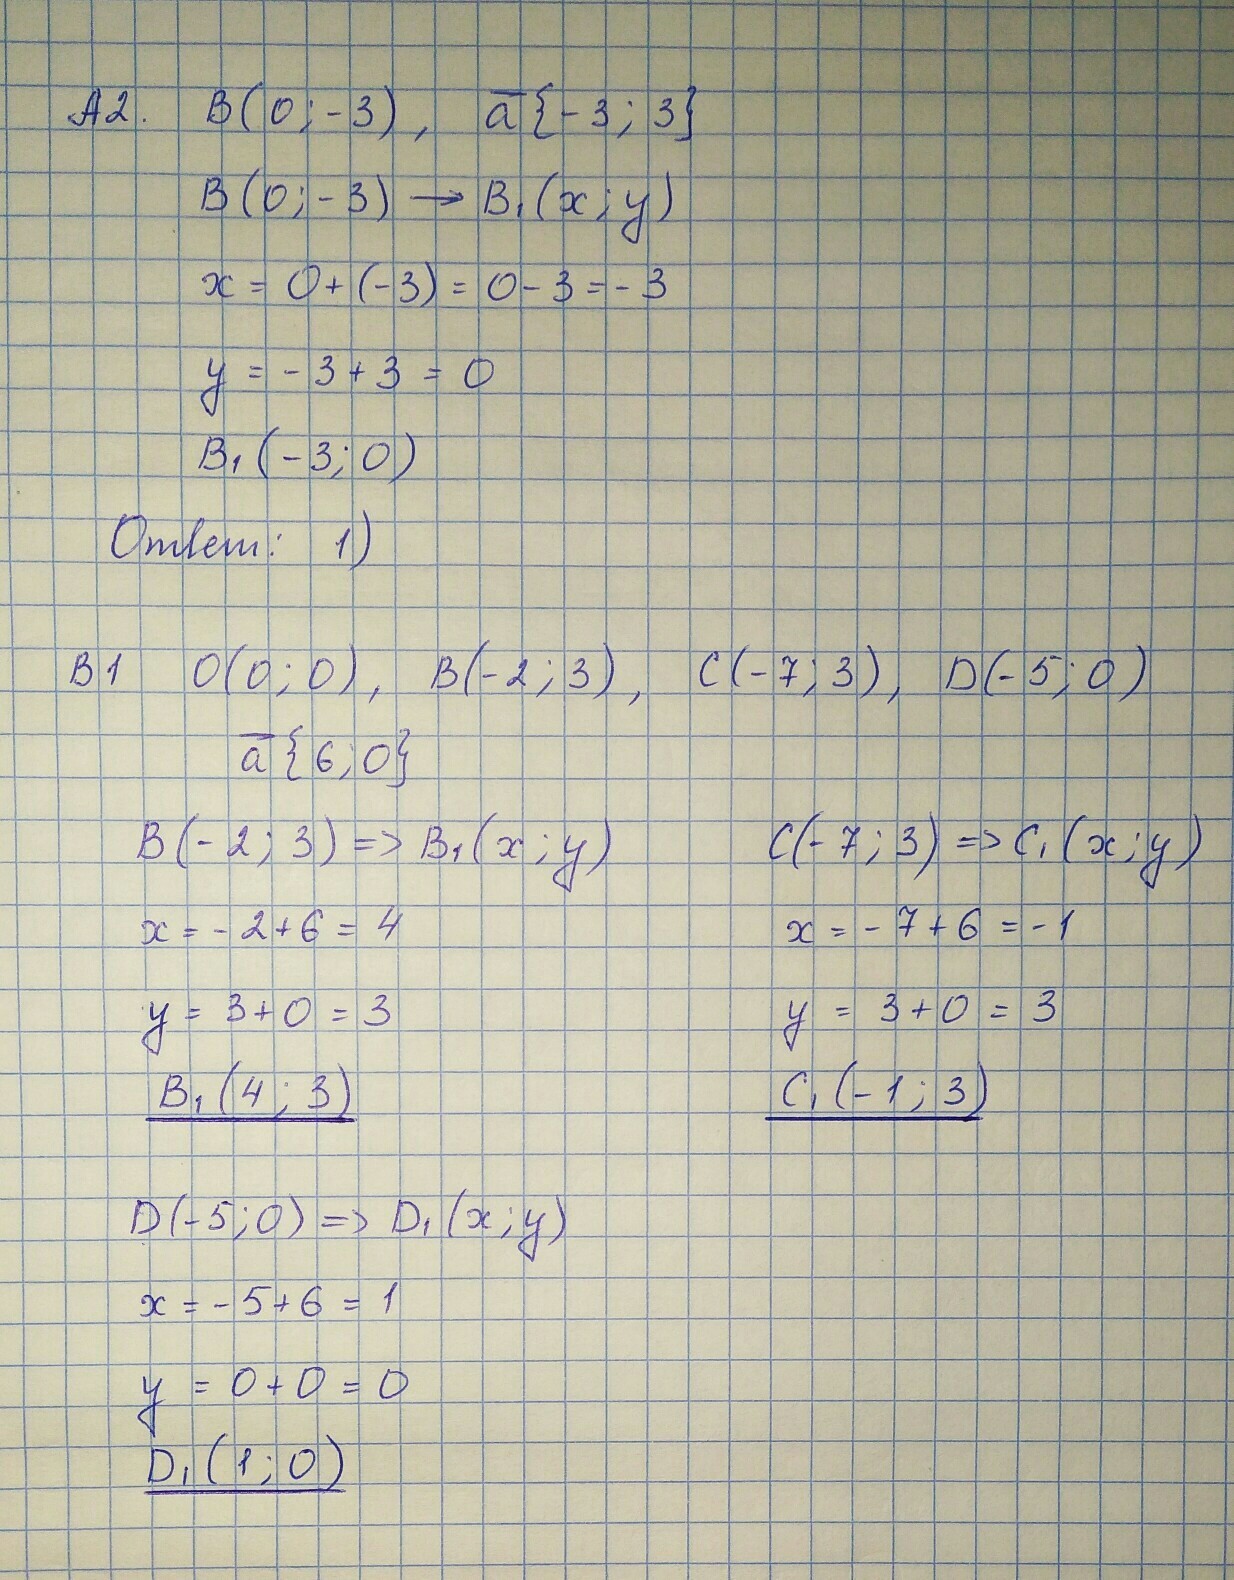 А2. B(0;-3), a̅{-3;3}
B(0;-3) → B₁(x;y)
x = 0+(-3) = 0-3 = -3
y = -3+3 = 0
B₁(-3;0)
Ответ: 1)
B1 O(0;0), B(-2;3), C(-7;3), D(-5;0)
a̅{6;0}
B(-2;3) => B₁(x;y)
x = -2+6 = 4
y = 3+0 = 3
B₁(4;3)
C(-7;3) => C₁(x;y)
x = -7+6 = -1
y = 3+0 = 3
C₁(-1;3)
D(-5;0) => D₁(x;y)
x = -5+6 = 1
y = 0+0 = 0
D₁(1;0)